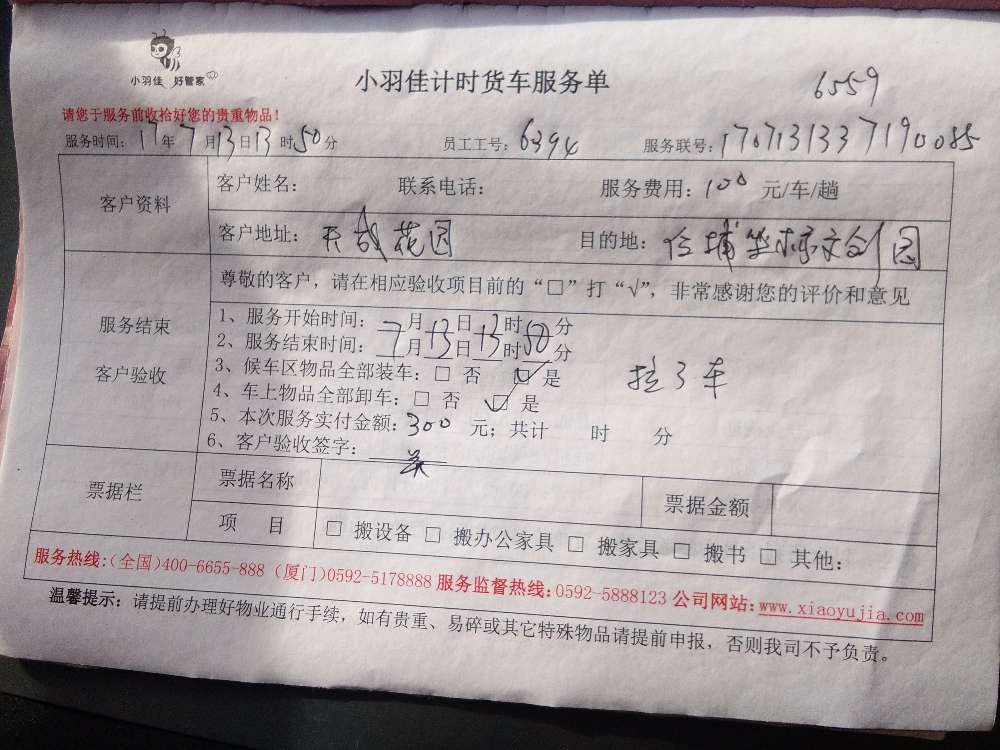 小羽佳 好管家
小羽佳计时货车服务单
6559
请您于服务前收拾好您的贵重物品！
服务时间：17年7月13日13时50分 员工工号：6394 服务联号：1707131337190085
客户资料
客户姓名： 联系电话： 服务费用：100元/车/趟
客户地址：天成花园 目的地：
服务结束
客户验收
尊敬的客户，请在相应验收项目前的“□”打“√”，非常感谢您的评价和意见
1、服务开始时间：7月13日13时50分
2、服务结束时间：7月13日13时50分
3、候车区物品全部装车：□ 否 □ 是
4、车上物品全部卸车：□ 否 □ 是
拉3车
5、本次服务实付金额：300元；共计 时 分
6、客户验收签字：
票据栏
票据名称 票据金额
项 目 □ 搬设备 □ 搬办公家具 □ 搬家具 □ 搬书 □ 其他：
服务热线：(全国)400-6655-888 (厦门)0592-5178888 服务监督热线：0592-5888123 公司网站：www.xiaoyujia.com
温馨提示：请提前办理好物业通行手续，如有贵重、易碎或其它特殊物品请提前申报，否则我司不予负责。